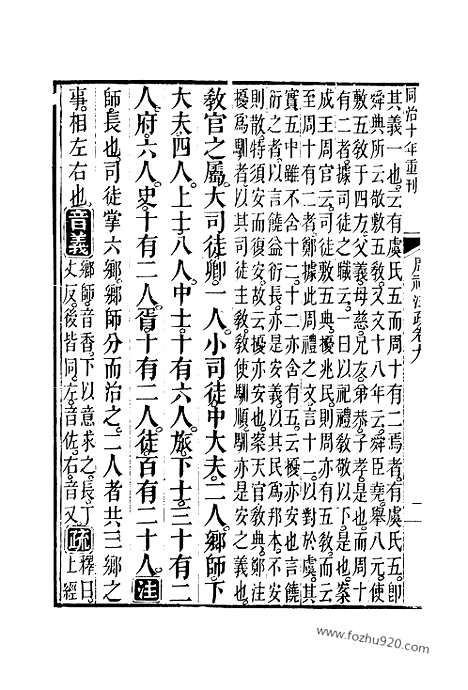 同治十年重刊
周禮注疏卷九
其義一也云有虞氏五而周十有二焉者有虞氏五即
舜典所云敬敷五敎又文十八年云舜臣堯舉八元使
敷五敎于四方父義母慈兄友弟恭子孝是也而周十
有二者據司徒之職云一曰以祀禮敎敬以下是也案
成王周官云司徒敷五典擾兆民則周亦有五敎而云
至周十有二者鄭據此周禮之文言十二以對於虞其
實五中雖不含十二十二亦含有五云擾亦安也言饒
衍之者以言饒益衍長亦是安義以其民爲邦本不安
則散特須安而復安故云擾亦安也案天官敎典鄭注
擾爲馴者以其司徒主敎敎使馴順馴亦是安之義也
敎官之屬大司徒卿一人小司徒中大夫二人鄉師下
大夫四人上士八人中士十有六人旅下士三十有二
人府六人史十有二人胥十有二人徒百有二十人注
師長也司徒掌六鄉鄉師分而治之二人者共三鄉之
事相左右也音義鄉師音香下以意求之長丁
丈反後皆同左音佐右音又疏釋曰
上經
www.fozhu920.com